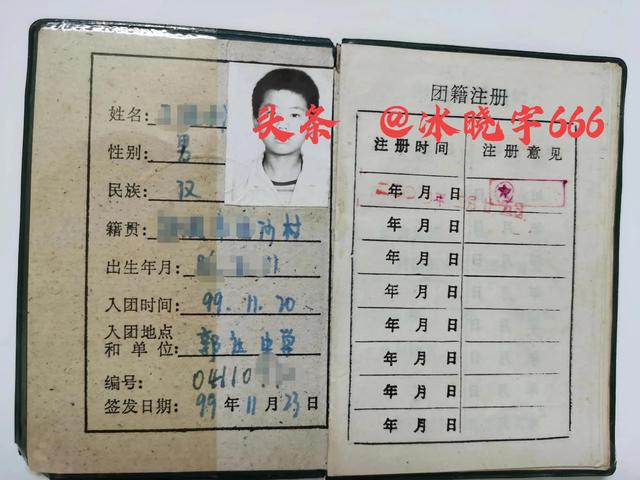 姓名:
性别: 男
民族: 汉
籍贯: 沟村
出生年月:
入团时间: 99.11.20
入团地点
和单位: 郭庄中学
编号: 04110
签发日期: 99年11月23日
头条 @冰晓宇666
团籍注册
注册时间 注册意见
年 月 日
年 月 日
年 月 日
年 月 日
年 月 日
年 月 日
年 月 日
年 月 日